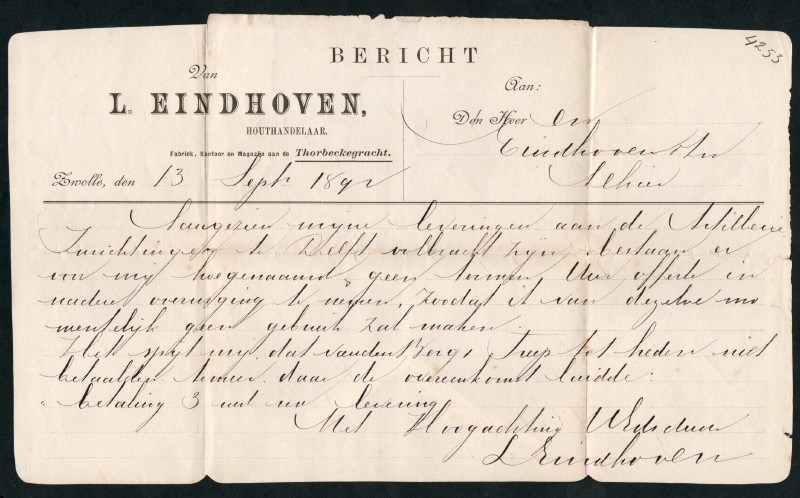 4253
BERICHT
Van
L. EINDHOVEN,
HOUTHANDELAAR.
Fabriek, Kantoor en Magazijn aan de Thorbeckegracht.
Aan:
Den Heer
Eindhoven &
Alhier
Zwolle, den 13 Sept 1892
Aangezien mijne leveringen aan de Artillerie
Inrichtingen te Delft volbracht zijn, bestaan er
voor mij hoegenaamd geen termen Uwe offerte in
nadere overweging te nemen, zoodat ik van dezelve mo-
mentelijk geen gebruik zal maken.
Het spijt mij dat van den Berg tot heden niet
betaalden temeer daar de overeenkomst luidde:
" betaling 3 na levering
Met Hoogachting UEdDw
L Eindhoven